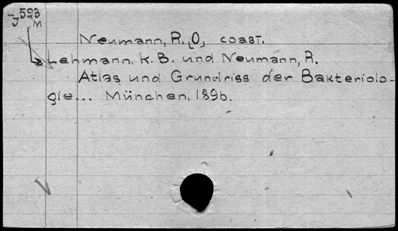 J523
M
Neumann, R. O, coaст.
Lehmann, K. B. und Neumann, R.
Atlas und Grundriss der Bakteriolo-
gie... München, 1896.